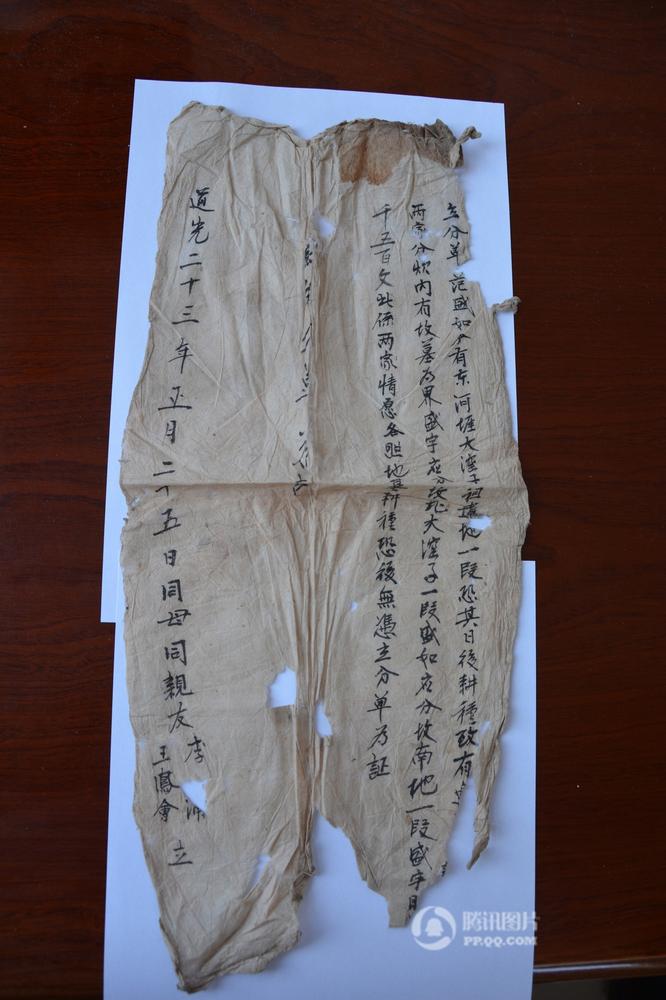 立分单范盛如今有东河堐大湾子祖遗地一段恐其日後耕種致有
两家分炊内有坟墓为界盛宇应分坟北大湾子一段盛如应分坟南地一段盛宇
千五百文此係两家情愿各照地耕種恐後無凭立分单为証
分单
道光二十三年正月二十五日同母同親友李
王鳳會
立
腾讯图片
PP.QQ.COM